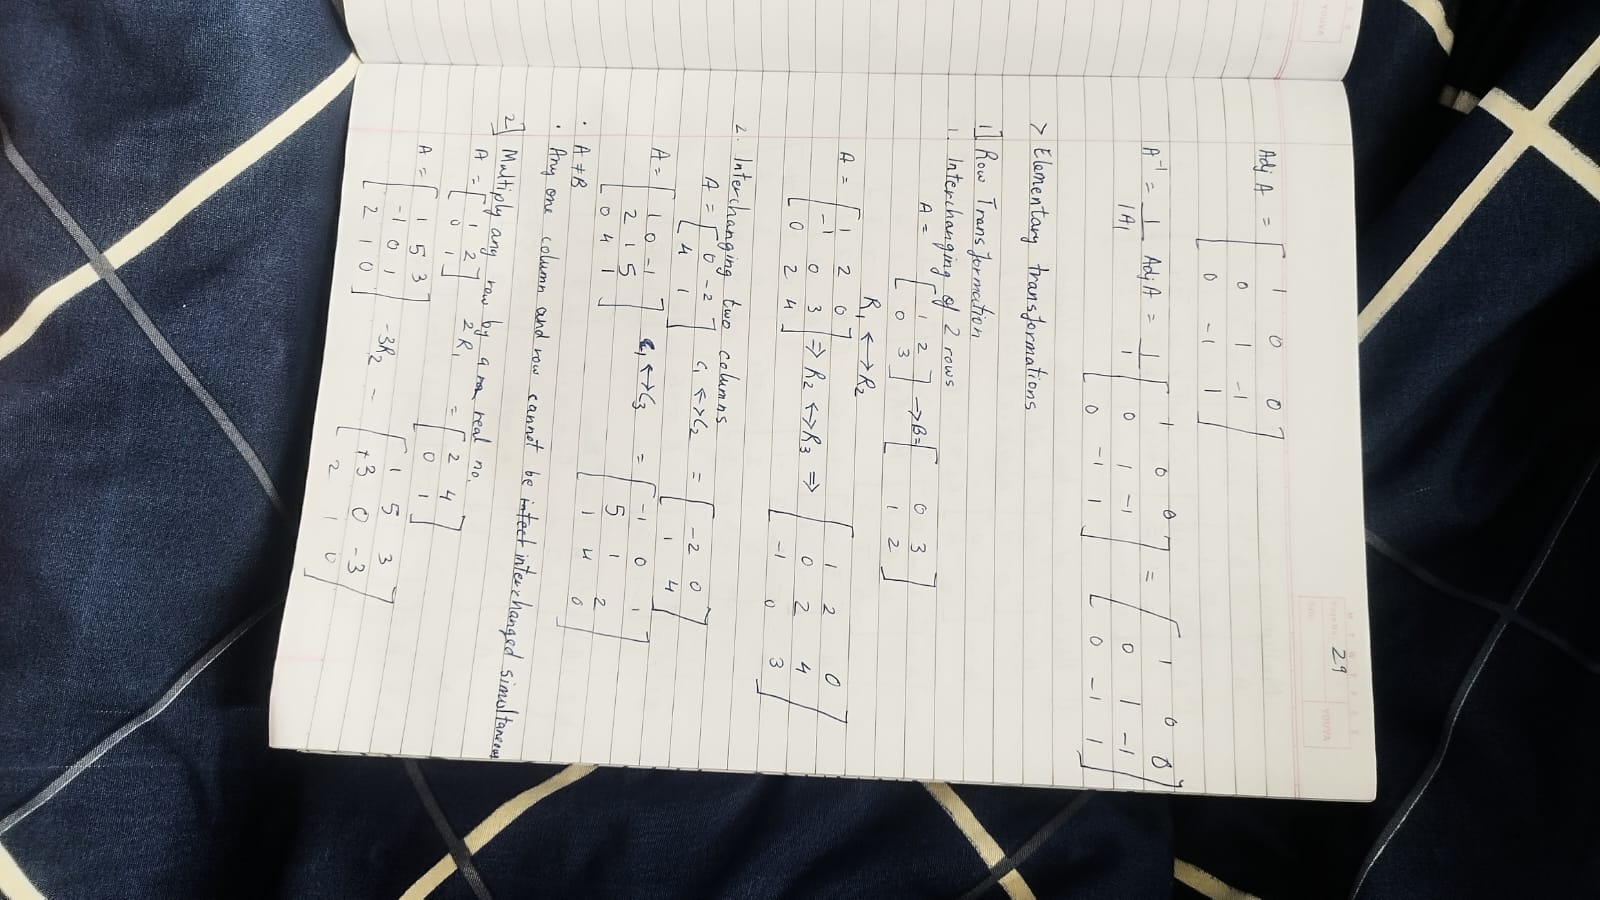 YOUVA
M T W T F S S
Page No. 29
YOUVA
Date:
Adj A = [ 1 0 0
0 1 -1
0 -1 1 ]
A⁻¹ = 1/|A| Adj A = 1/1 [ 1 0 0 = [ 1 0 0
0 1 -1 0 1 -1
0 -1 1 ] 0 -1 1 ]
> Elementary transformations
1] Row Transformation
1. Interchanging of 2 rows
A = [ 1 2 → B = [ 0 3
0 3 ] 1 2 ]
R₁ ↔ R₂
A = [ 1 2 0 [ 1 2 0
-1 0 3 ⇒ R₂ ↔ R₃ ⇒ 0 2 4
0 2 4 ] -1 0 3 ]
2. Interchanging two columns
A = [ 0 -2 C₁ ↔ C₂ = [ -2 0
4 1 ] 1 4 ]
A = [ 1 0 -1 C₁ ↔ C₃ = [ -1 0 1
2 1 5 5 1 2
0 4 1 ] 1 4 0 ]
· A ≠ B
· Any one column and row cannot be intect interchanged simultaneous
2] Multiply any row by a real no.
A = [ 1 2 2R₁ = [ 2 4
0 1 ] 0 1 ]
A = [ 1 5 3 [ 1 5 3
-1 0 1 -3R₂ - +3 0 -3
2 1 0 ] 2 1 0 ]